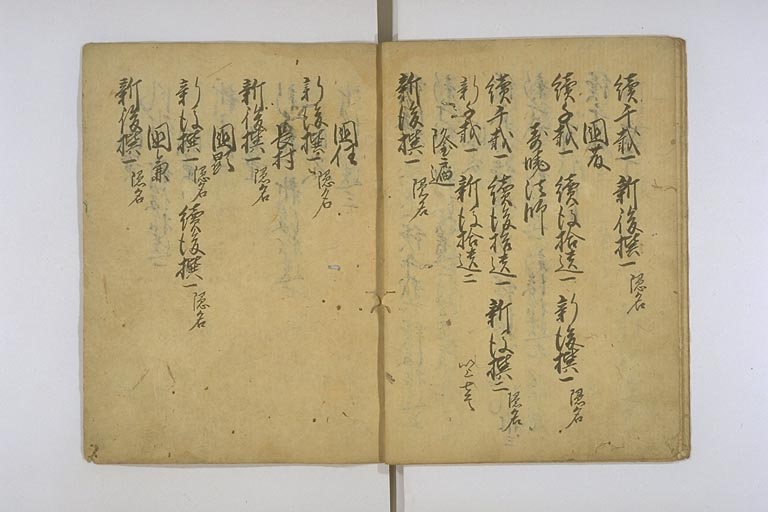 續千載一 新後撰一隠名
國友
續千載一 續後拾遺一 新後撰一隠名
壽暁法師
續千載一 續後拾遺一 新後撰二隠名
新千載一 新後拾遺二
隆遍
新後撰一隠名
國任
新後撰一隠名
長村
新後撰一隠名
國顕
新後撰一隠名 續後撰一隠名
國兼
新後撰一隠名